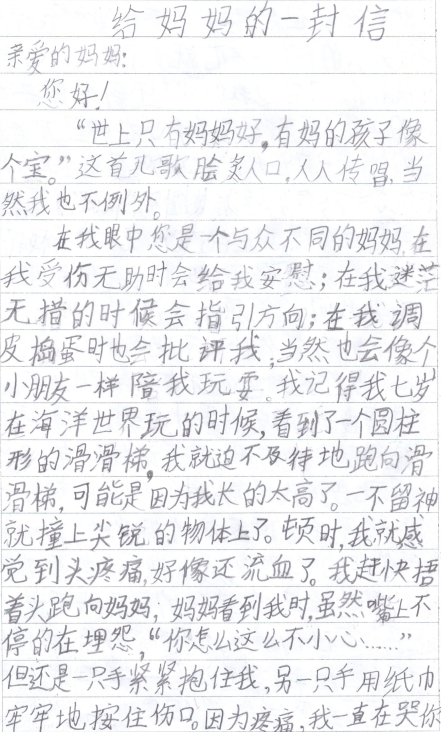 给妈妈的一封信
亲爱的妈妈:
您好!
“世上只有妈妈好,有妈的孩子像
个宝。”这首儿歌脍炙人口,人人传唱,当
然我也不例外。
在我眼中您是一个与众不同的妈妈,在
我受伤无助时会给我安慰;在我迷茫
无措的时候会指引方向;在我调
皮捣蛋时也会批评我;当然也会像个
小朋友一样陪我玩耍。我记得我七岁
在海洋世界玩的时候,看到了一个圆柱
形的滑滑梯,我就迫不及待地跑向滑
滑梯,可能是因为我长的太高了。一不留神
就撞上尖锐的物体上了。顿时,我就感
觉到头疼痛,好像还流血了。我赶快捂
着头跑向妈妈;妈妈看到我时,虽然嘴上不
停的在埋怨,“你怎么这么不小心……”
但还是一只手紧紧抱住我,另一只手用纸巾
牢牢地按住伤口。因为疼痛,我一直在哭你